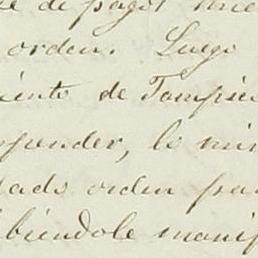 de pagot
orden. Luego
iento de Tampico
spender, le min
pado orden par
biéndole manif